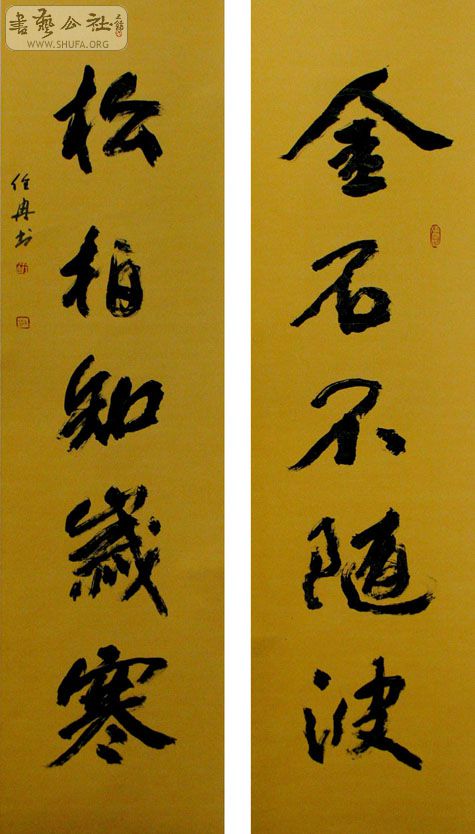 金石不随波
松柏知歲寒
任冉书
書藝公社
WWW.SHUFA.ORG